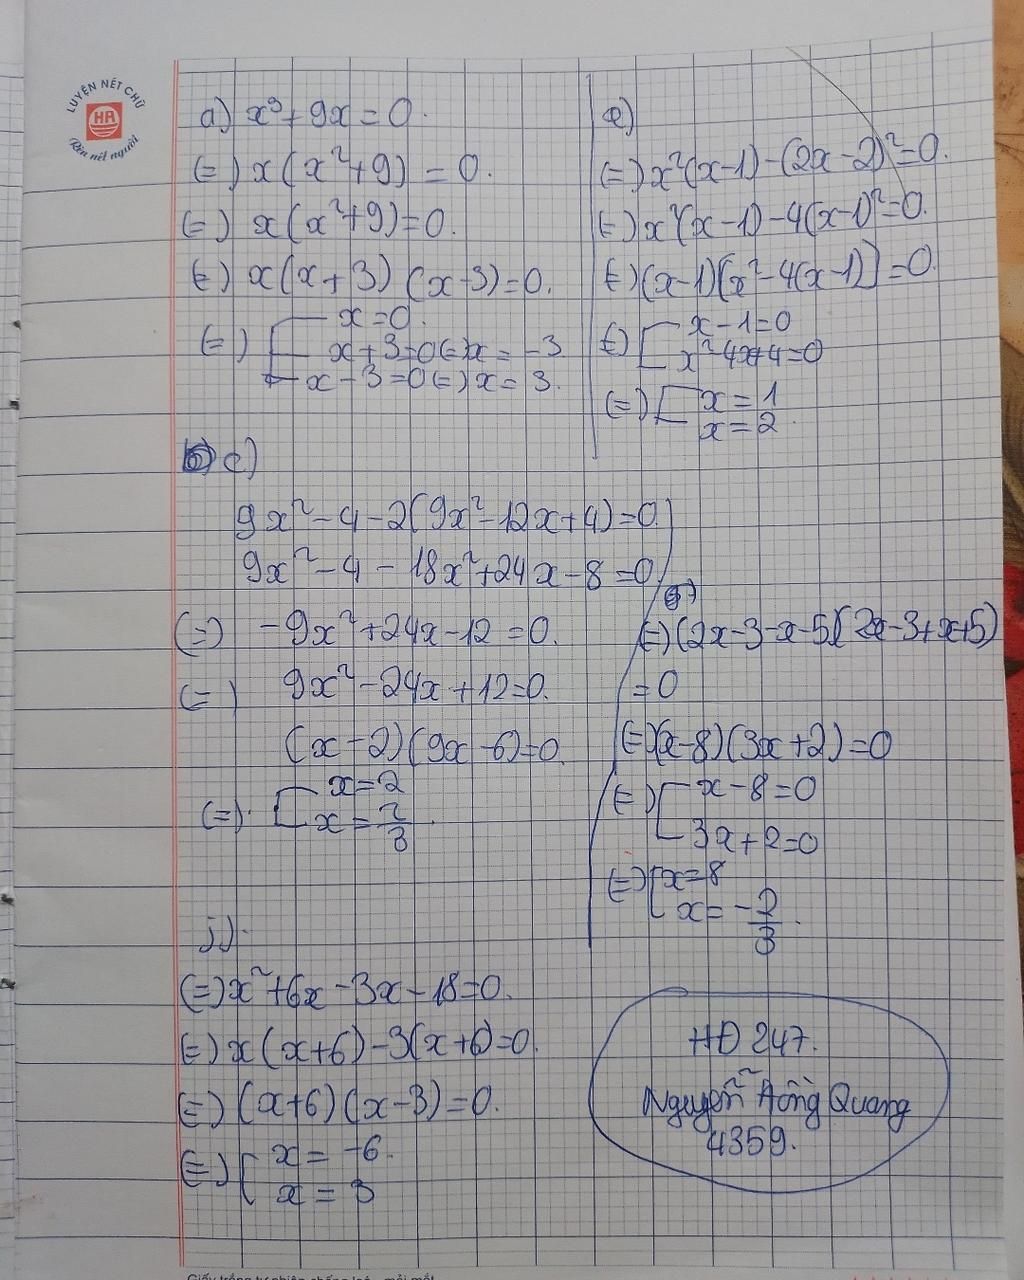 LUYỆN NÉT CHỮ
HA
Rèn nết người
a) x³ + 9x = 0.
(=) x(x² + 9) = 0.
(=) x(x² + 9) = 0.
(=) x(x + 3) (x - 3) = 0.
(=) [ x = 0.
x + 3 = 0 (=) x = -3.
x - 3 = 0 (=) x = 3.
e)
(=) x²(x - 1) - (2x - 2)² = 0.
(=) x²(x - 1) - 4(x - 1)² = 0.
(=) (x - 1)[x² - 4(x - 1)] = 0
(=) [ x - 1 = 0
x² - 4x + 4 = 0
(=) [ x = 1
x = 2.
c)
9x² - 4 - 2(9x² - 12x + 4) = 0.
9x² - 4 - 18x² + 24x - 8 = 0
(=) -9x² + 24x - 12 = 0.
(=) 9x² - 24x + 12 = 0.
(x - 2) (9x - 6) = 0.
(=). [ x = 2
x = 2/3.
(=) (2x - 3 - x - 5)(2x - 3 + x + 5)
= 0
(=) (x - 8) (3x + 2) = 0
(=) [ x - 8 = 0
3x + 2 = 0
(=) [ x = 8
x = -2/3.
j).
(=) x² + 6x - 3x - 18 = 0.
(=) x(x + 6) - 3(x + 6) = 0.
(=) (x + 6) (x - 3) = 0.
(=) [ x = -6.
x = 3
HĐ 247.
Nguyễn Hồng Quang
4359.